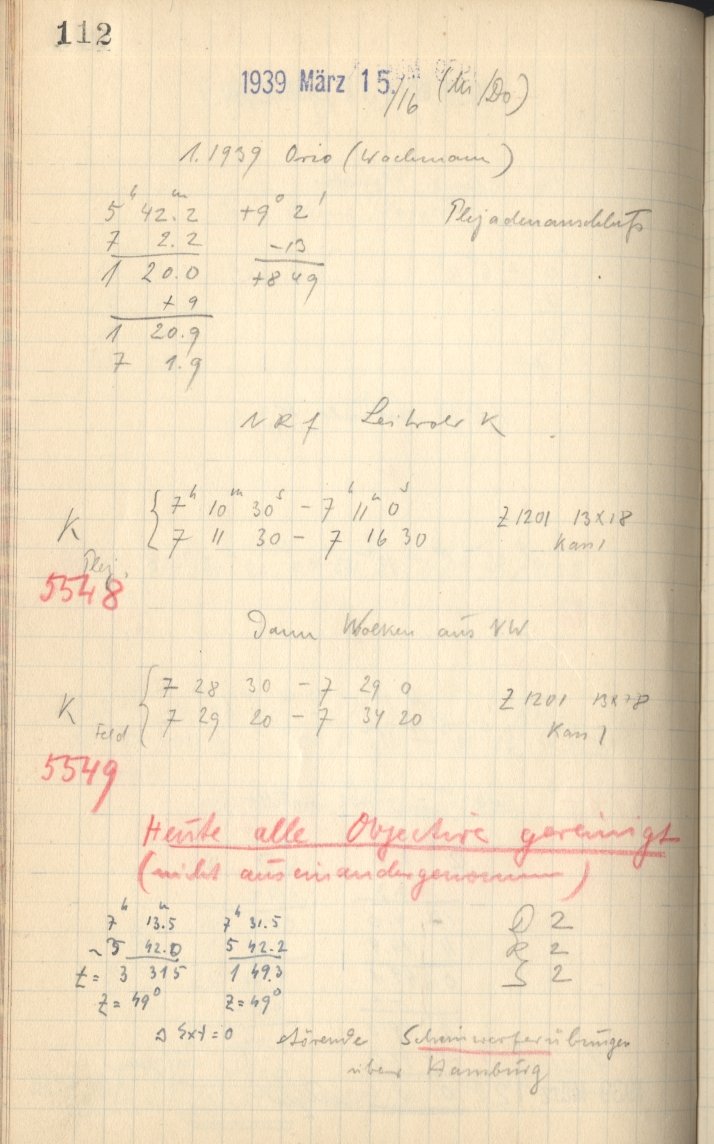 112
1939 März 15./16 (Mi/Do)
1.1939 Orio (Wachmann)
5h 42m.2 +9° 2' Plejadenanschluß
7 2.2 -13
1 20.0 +8 49
+9
1 20.9
7 1.9
Leitrohr K
7h 10m 30s - 7h 11m 0s Z1201 13x18
K 7 11 30 - 7 16 30 Kass 1
Plej.
5548
Dann Wolken aus NW
7 28 30 - 7 29 0 Z1201 13x18
K Feld 7 29 20 - 7 34 20 Kass 1
5549
Heute alle Objective gereinigt
(nicht auseinandergenommen)
7h 13m.5 7h 31.5 D 2
5 42.0 5 42.2 R 2
t = 3 31 5 1 49.3 S 2
z = 49° z = 49°
Ext = 0 störende Scheinwerferübungen
über Hamburg